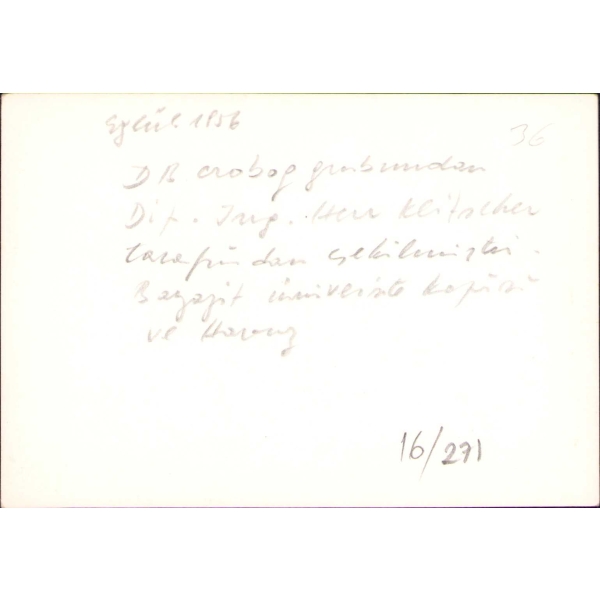 Eylül 1956
36
DR crobog grubundan
Dip. Ing. Herr Klitscher
tarafından çekilmiştir.
Bayazit üniversite kapısı
ve Havuz
16/271